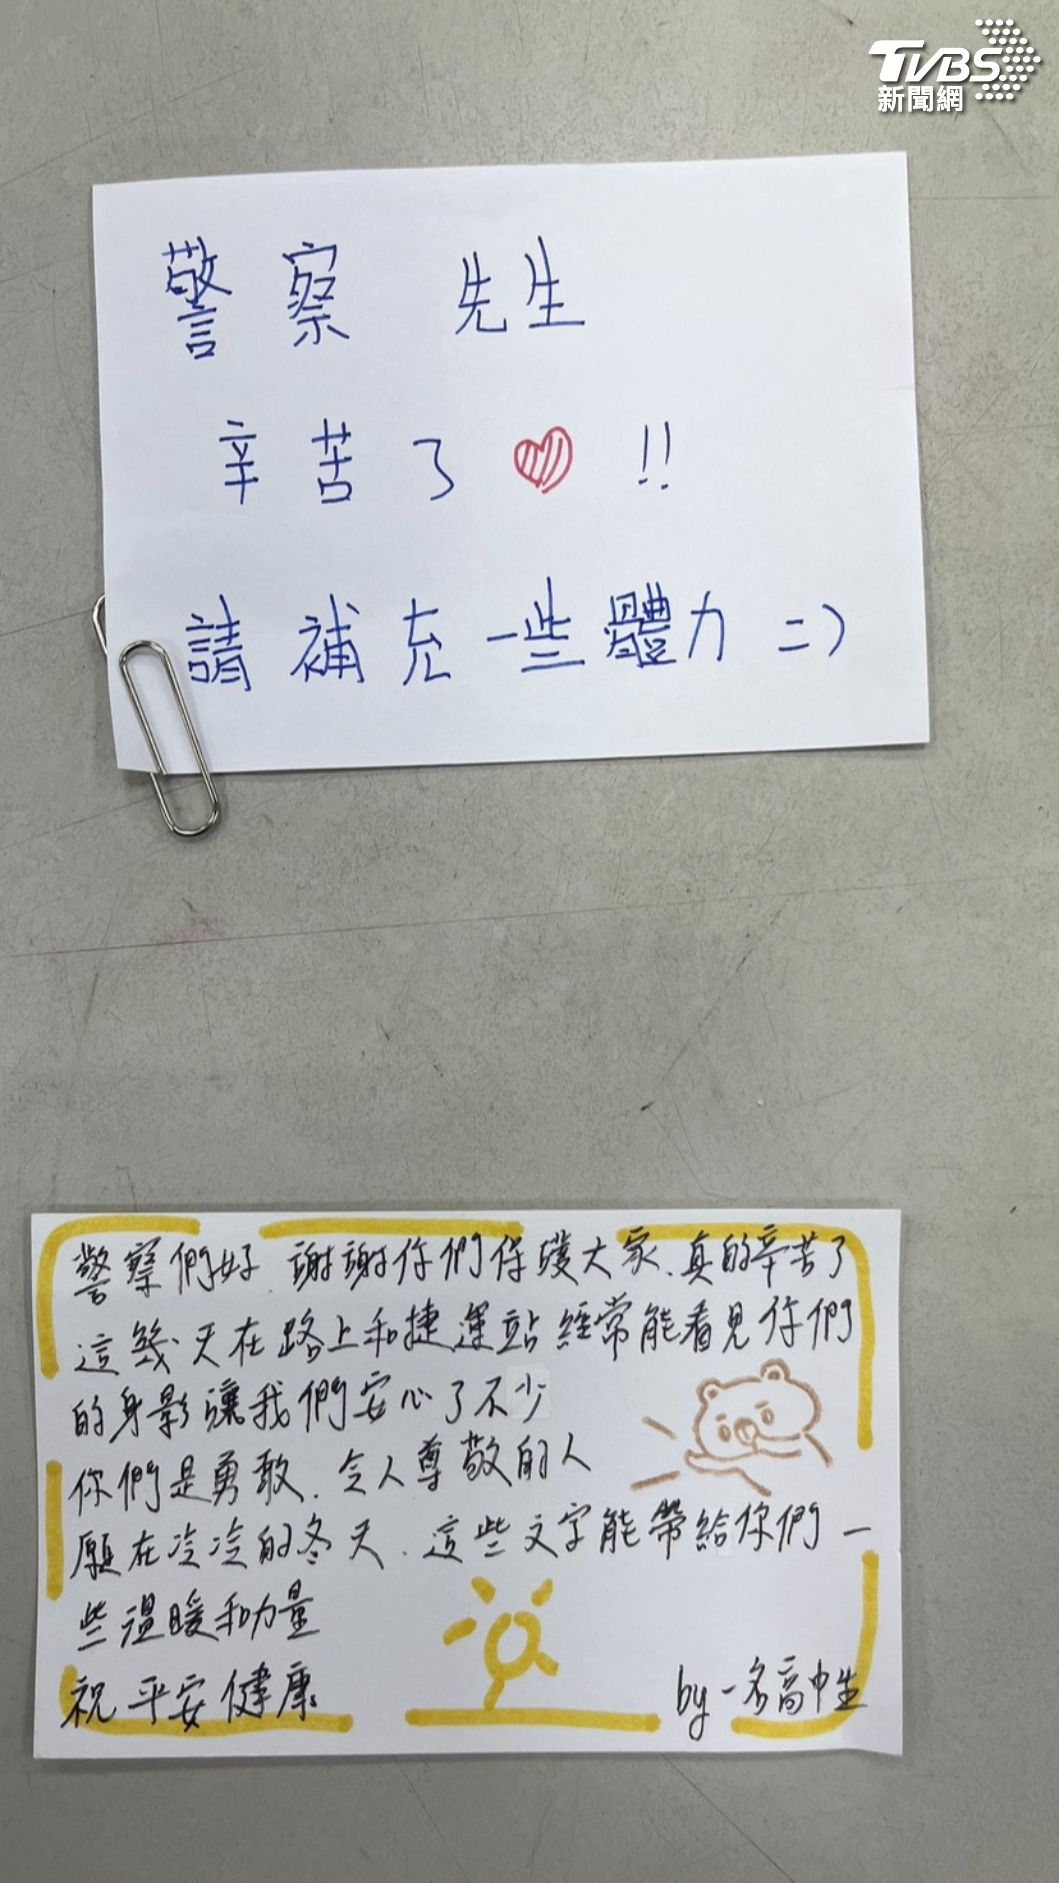 TVBS
新聞網
警察 先生
辛苦了♥!!
請補充一些體力 =)
警察們好.謝謝你們保護大家、真的辛苦了
這幾天在路上和捷運站經常能看見你們
的身影讓我們安心了不少
你們是勇敢.令人尊敬的人
願在冷冷的冬天.這些文字能帶給你們一
些溫暖和力量
祝平安健康
by 一名高中生